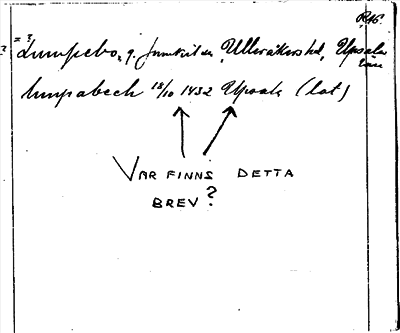 R46.
= ?
? Lumpebo, g. Jumkil sn, Ulleråkers hd, Upsala
län
lumpabech 18/10 1432 Upsala (lat)
VAR FINNS DETTA
BREV?